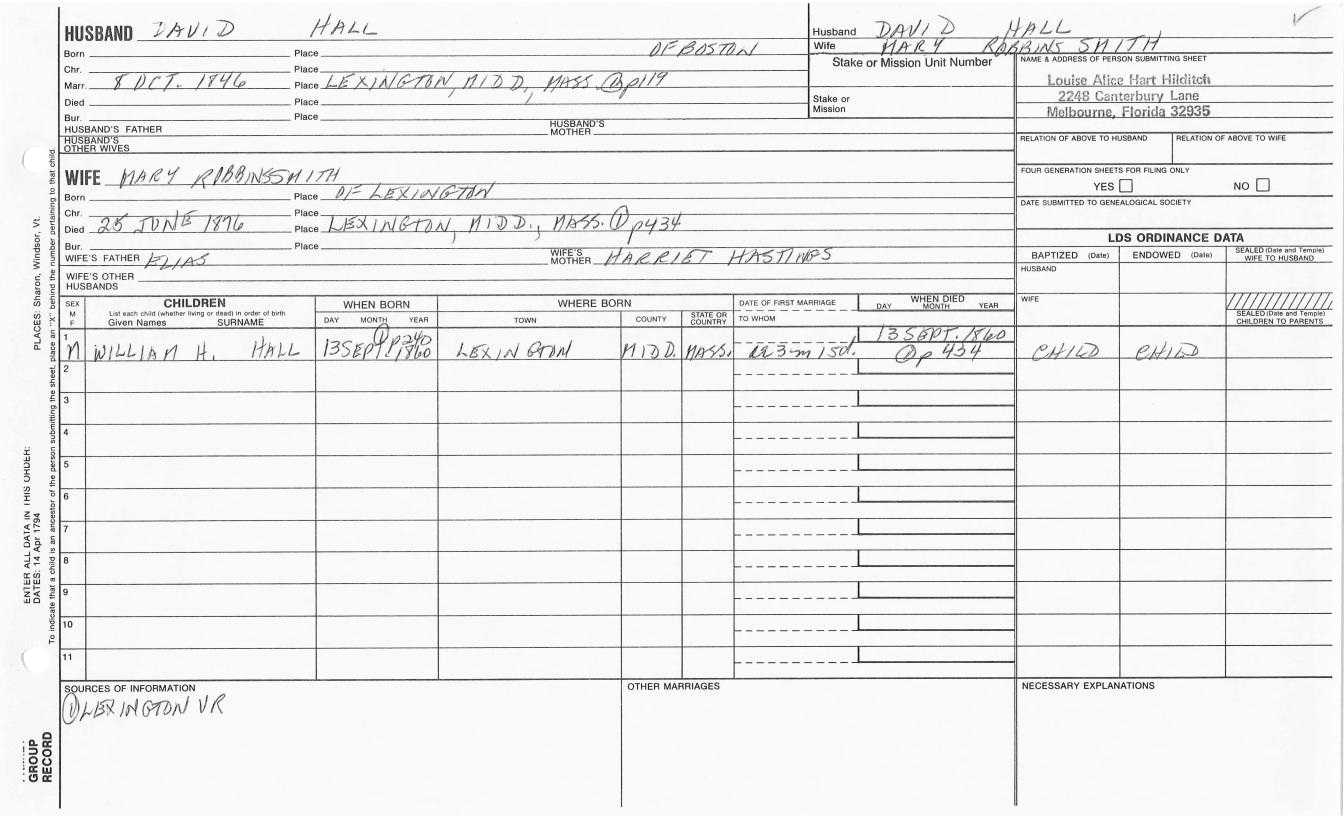 HUSBAND DAVID HALL
Born Place OF BOSTON
Chr. Place
Marr. 8 OCT. 1846 Place LEXINGTON, MIDD., MASS. ① p119
Died Place
Bur. Place
HUSBAND'S FATHER HUSBAND'S MOTHER
HUSBAND'S OTHER WIVES
Husband DAVID HALL
Wife MARY ROBBINS SMITH
Stake or Mission Unit Number
Stake or Mission
NAME & ADDRESS OF PERSON SUBMITTING SHEET
Louise Alice Hart Hilditch
2248 Canterbury Lane
Melbourne, Florida 32935
RELATION OF ABOVE TO HUSBAND RELATION OF ABOVE TO WIFE
FOUR GENERATION SHEETS FOR FILING ONLY
YES NO
DATE SUBMITTED TO GENEALOGICAL SOCIETY
WIFE MARY ROBBINS SMITH
Born Place OF LEXINGTON
Chr. Place
Died 25 JUNE 1876 Place LEXINGTON, MIDD., MASS. ① p434
Bur. Place
WIFE'S FATHER ELIAS WIFE'S MOTHER HARRIET HASTINGS
WIFE'S OTHER HUSBANDS
LDS ORDINANCE DATA
BAPTIZED (Date) ENDOWED (Date) SEALED (Date and Temple) WIFE TO HUSBAND
HUSBAND
WIFE
SEALED (Date and Temple) CHILDREN TO PARENTS
SEX M F CHILDREN WHEN BORN WHERE BORN DATE OF FIRST MARRIAGE WHEN DIED
List each child (whether living or dead) in order of birth
Given Names SURNAME DAY MONTH YEAR TOWN COUNTY STATE OR COUNTRY TO WHOM DAY MONTH YEAR
1 ① p240 13 SEPT. 1860
M WILLIAM H. HALL 13 SEPT. 1860 LEXINGTON MIDD. MASS. 3m 15d. ① p 434 CHILD CHILD
2
3
4
5
6
7
8
9
10
11
SOURCES OF INFORMATION OTHER MARRIAGES NECESSARY EXPLANATIONS
① LEXINGTON VR
ENTER ALL DATA IN THIS ORDER:
DATES: 14 Apr 1794 PLACES: Sharon, Windsor, Vt.
To indicate that a child is an ancestor of the person submitting the sheet, place an "X" behind the number pertaining to that child.
GROUP
RECORD